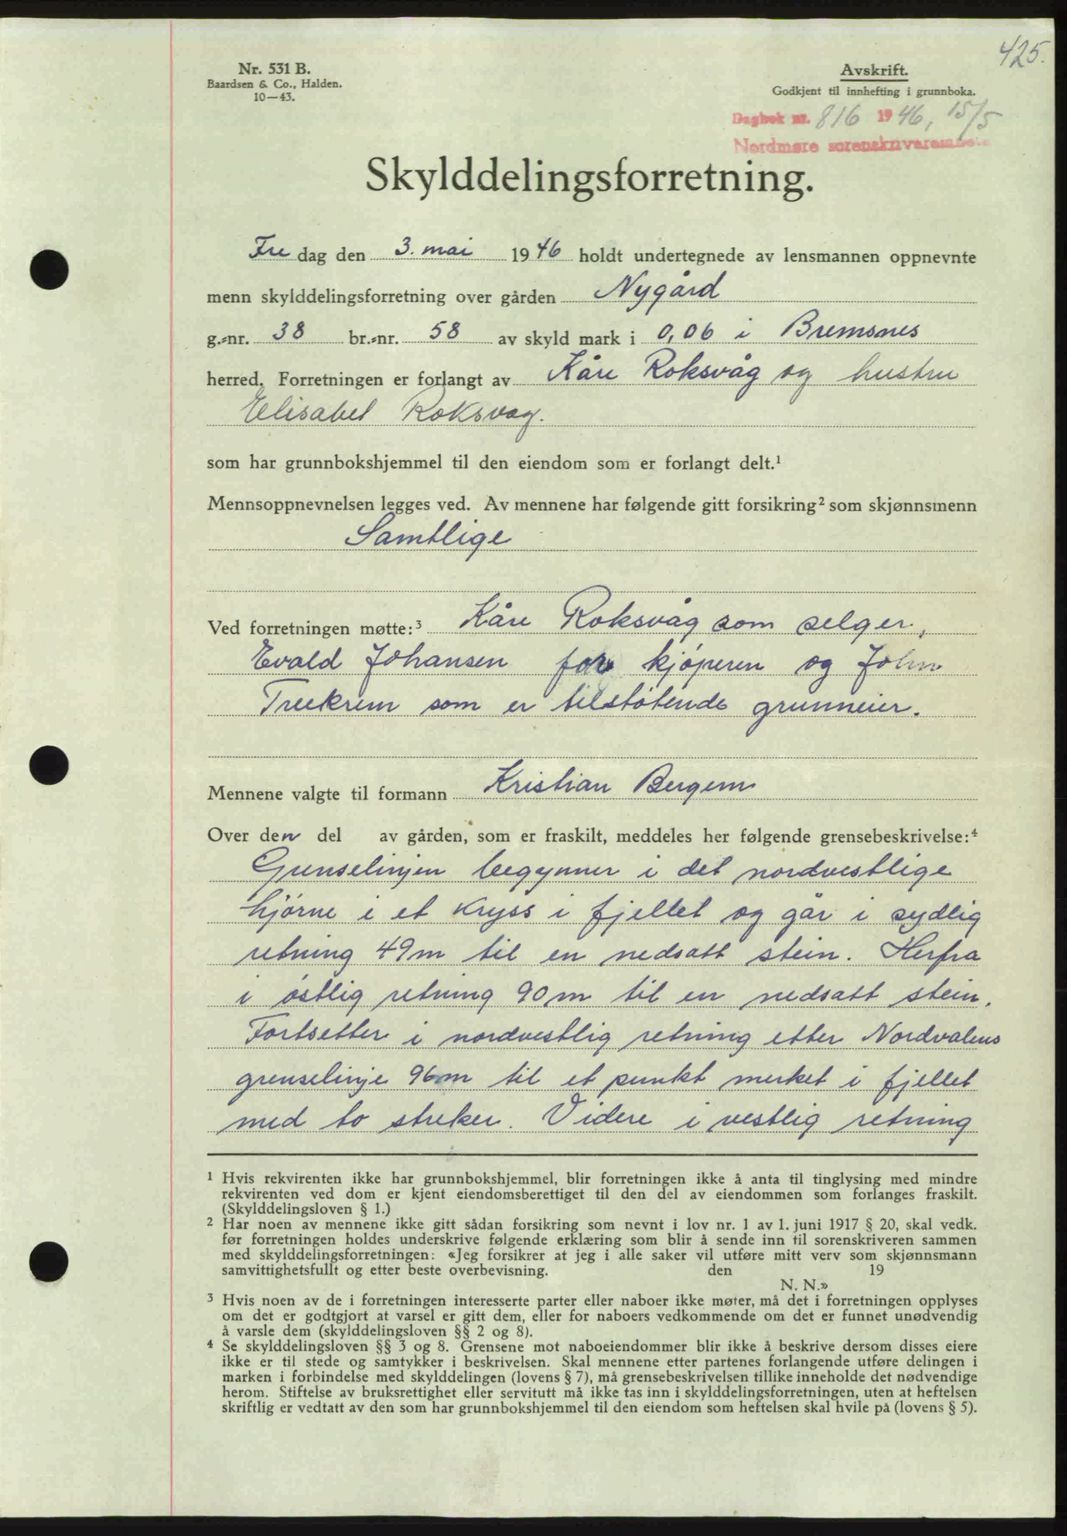 425.
Nr. 531 B.
Baardsen & Co., Halden.
10—43.
Avskrift.
Godkjent til innhefting i grunnboka.
Dagbok nr. 816 1946, 15/5
Nordmøre sorenskriverembete
Skylddelingsforretning.
Fre dag den 3. mai 1946 holdt undertegnede av lensmannen oppnevnte
menn skylddelingsforretning over gården Nygård
g.-nr. 38 br.-nr. 58 av skyld mark i 0,06 i Bremsnes
herred. Forretningen er forlangt av Kåre Roksvåg og hustru
Elisabet Roksvag.
som har grunnbokshjemmel til den eiendom som er forlangt delt.¹
Mennsoppnevnelsen legges ved. Av mennene har følgende gitt forsikring² som skjønnsmenn
Samtlige
Ved forretningen møtte:³ Kåre Roksvåg som selger,
Evald Johansen for kjøperen og John
Treekrem som er tilstøtende grunneier.
Mennene valgte til formann Kristian Bergem
Over den del av gården, som er fraskilt, meddeles her følgende grensebeskrivelse:⁴
Grenselinjen begynner i det nordvestlige
hjørne i et kryss i fjellet og går i sydlig
retning 49m til en nedsatt stein. Herfra
i østlig retning 90m til en nedsatt stein.
Fortsetter i nordvestlig retning etter Nordvalens
grenselinje 96m til et punkt merket i fjellet
med to streker. Videre i vestlig retning
1 Hvis rekvirenten ikke har grunnbokshjemmel, blir forretningen ikke å anta til tinglysing med mindre
rekvirenten ved dom er kjent eiendomsberettiget til den del av eiendommen som forlanges fraskilt.
(Skylddelingsloven § 1.)
2 Har noen av mennene ikke gitt sådan forsikring som nevnt i lov nr. 1 av 1. juni 1917 § 20, skal vedk.
før forretningen holdes underskrive følgende erklæring som blir å sende inn til sorenskriveren sammen
med skylddelingsforretningen: «Jeg forsikrer at jeg i alle saker vil utføre mitt verv som skjønnsmann
samvittighetsfullt og etter beste overbevisning. den 19
N. N.»
3 Hvis noen av de i forretningen interesserte parter eller naboer ikke møter, må det i forretningen opplyses
om det er godtgjort at varsel er gitt dem, eller for naboers vedkommende om det er funnet unødvendig
å varsle dem (skylddelingsloven §§ 2 og 8).
4 Se skylddelingsloven §§ 3 og 8. Grensene mot naboeiendommer blir ikke å beskrive dersom disses eiere
ikke er til stede og samtykker i beskrivelsen. Skal mennene etter partenes forlangende utføre delingen i
marken i forbindelse med skylddelingen (lovens § 7), må grensebeskrivelsen tillike inneholde det nødvendige
herom. Stiftelse av bruksrettighet eller servitutt må ikke tas inn i skylddelingsforretningen, uten at heftelsen
skriftlig er vedtatt av den som har grunnbokshjemmel til den eiendom som heftelsen skal hvile på (lovens § 5).